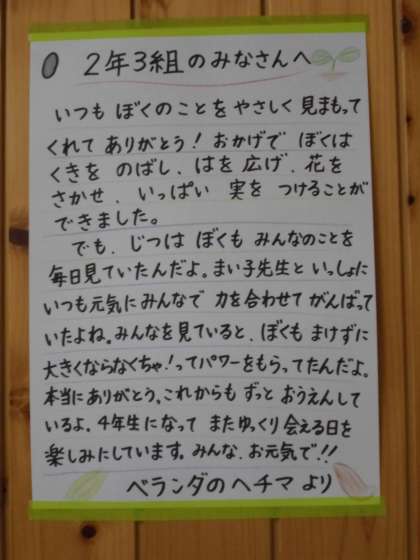 2年3組のみなさんへ
いつも ぼくのことを やさしく 見まもって
くれて ありがとう! おかげで ぼくは
くきを のばし、はを 広げ、花を
さかせ、いっぱい 実を つけることが
できました。
でも、じつは ぼくも みんなのことを
毎日見ていたんだよ。まい子先生と いっしょに
いつも元気にみんなで 力を合わせて がんばって
いたよね。みんなを見ていると、ぼくも まけずに
大きくならなくちゃ!ってパワーをもらってたんだよ。
本当にありがとう。これからも ずっと おうえんして
いるよ。4年生になって またゆっくり会える日を
楽しみにしています。みんな、お元気で!!
ベランダの ヘチマ より